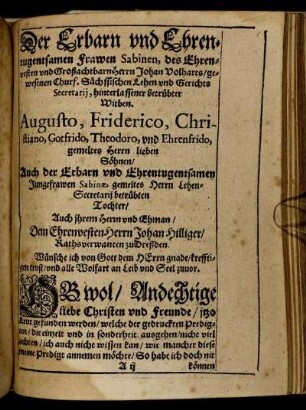 Der Erbarn vnd Ehren-
tugentsamen Frawen Sabinen, des Ehren-
vesten vnd Großachtbarn Herrn Johan Volharts/ ge-
wesenen Churf. Sächssischen Lehen vnd Gerichts
Secretarij, hinterlassener betrübter
Witben.
Augusto, Friderico, Chri-
stiano, Gotfrido, Theodoro, vnd Ehrenfrido,
gemeltes Herrn lieben
Söhnen/
Auch der Erbarn vnd Ehrentugentsamen
Jungefrawen Sabinæ gemeltes Herrn Lehen-
Secretarij betrübten
Tochter/
Auch jhrem Herrn vnd Ehman/
Dem Ehrnvesten Herrn Johan Hilliger/
Rathsverwanten zu Dreßden.
Wünsche ich von Gott dem HErrn gnade/ krefftigen
trost/ vnd alle Wolfart an Leib vnd Seel zuvor.
OB wol/ Andechtige
liebe Christen vnd Freunde/ jtzo
Leut gefunden werden/ welche der gedruckten Predig-
ten/ die eintzelt vnd in sonderheit ausgehen/ nicht viel
achten/ ich auch nicht wissen kan/ wie mancher diese
meine Predigt annemen möchte/ So habe ich doch nit
A ij können